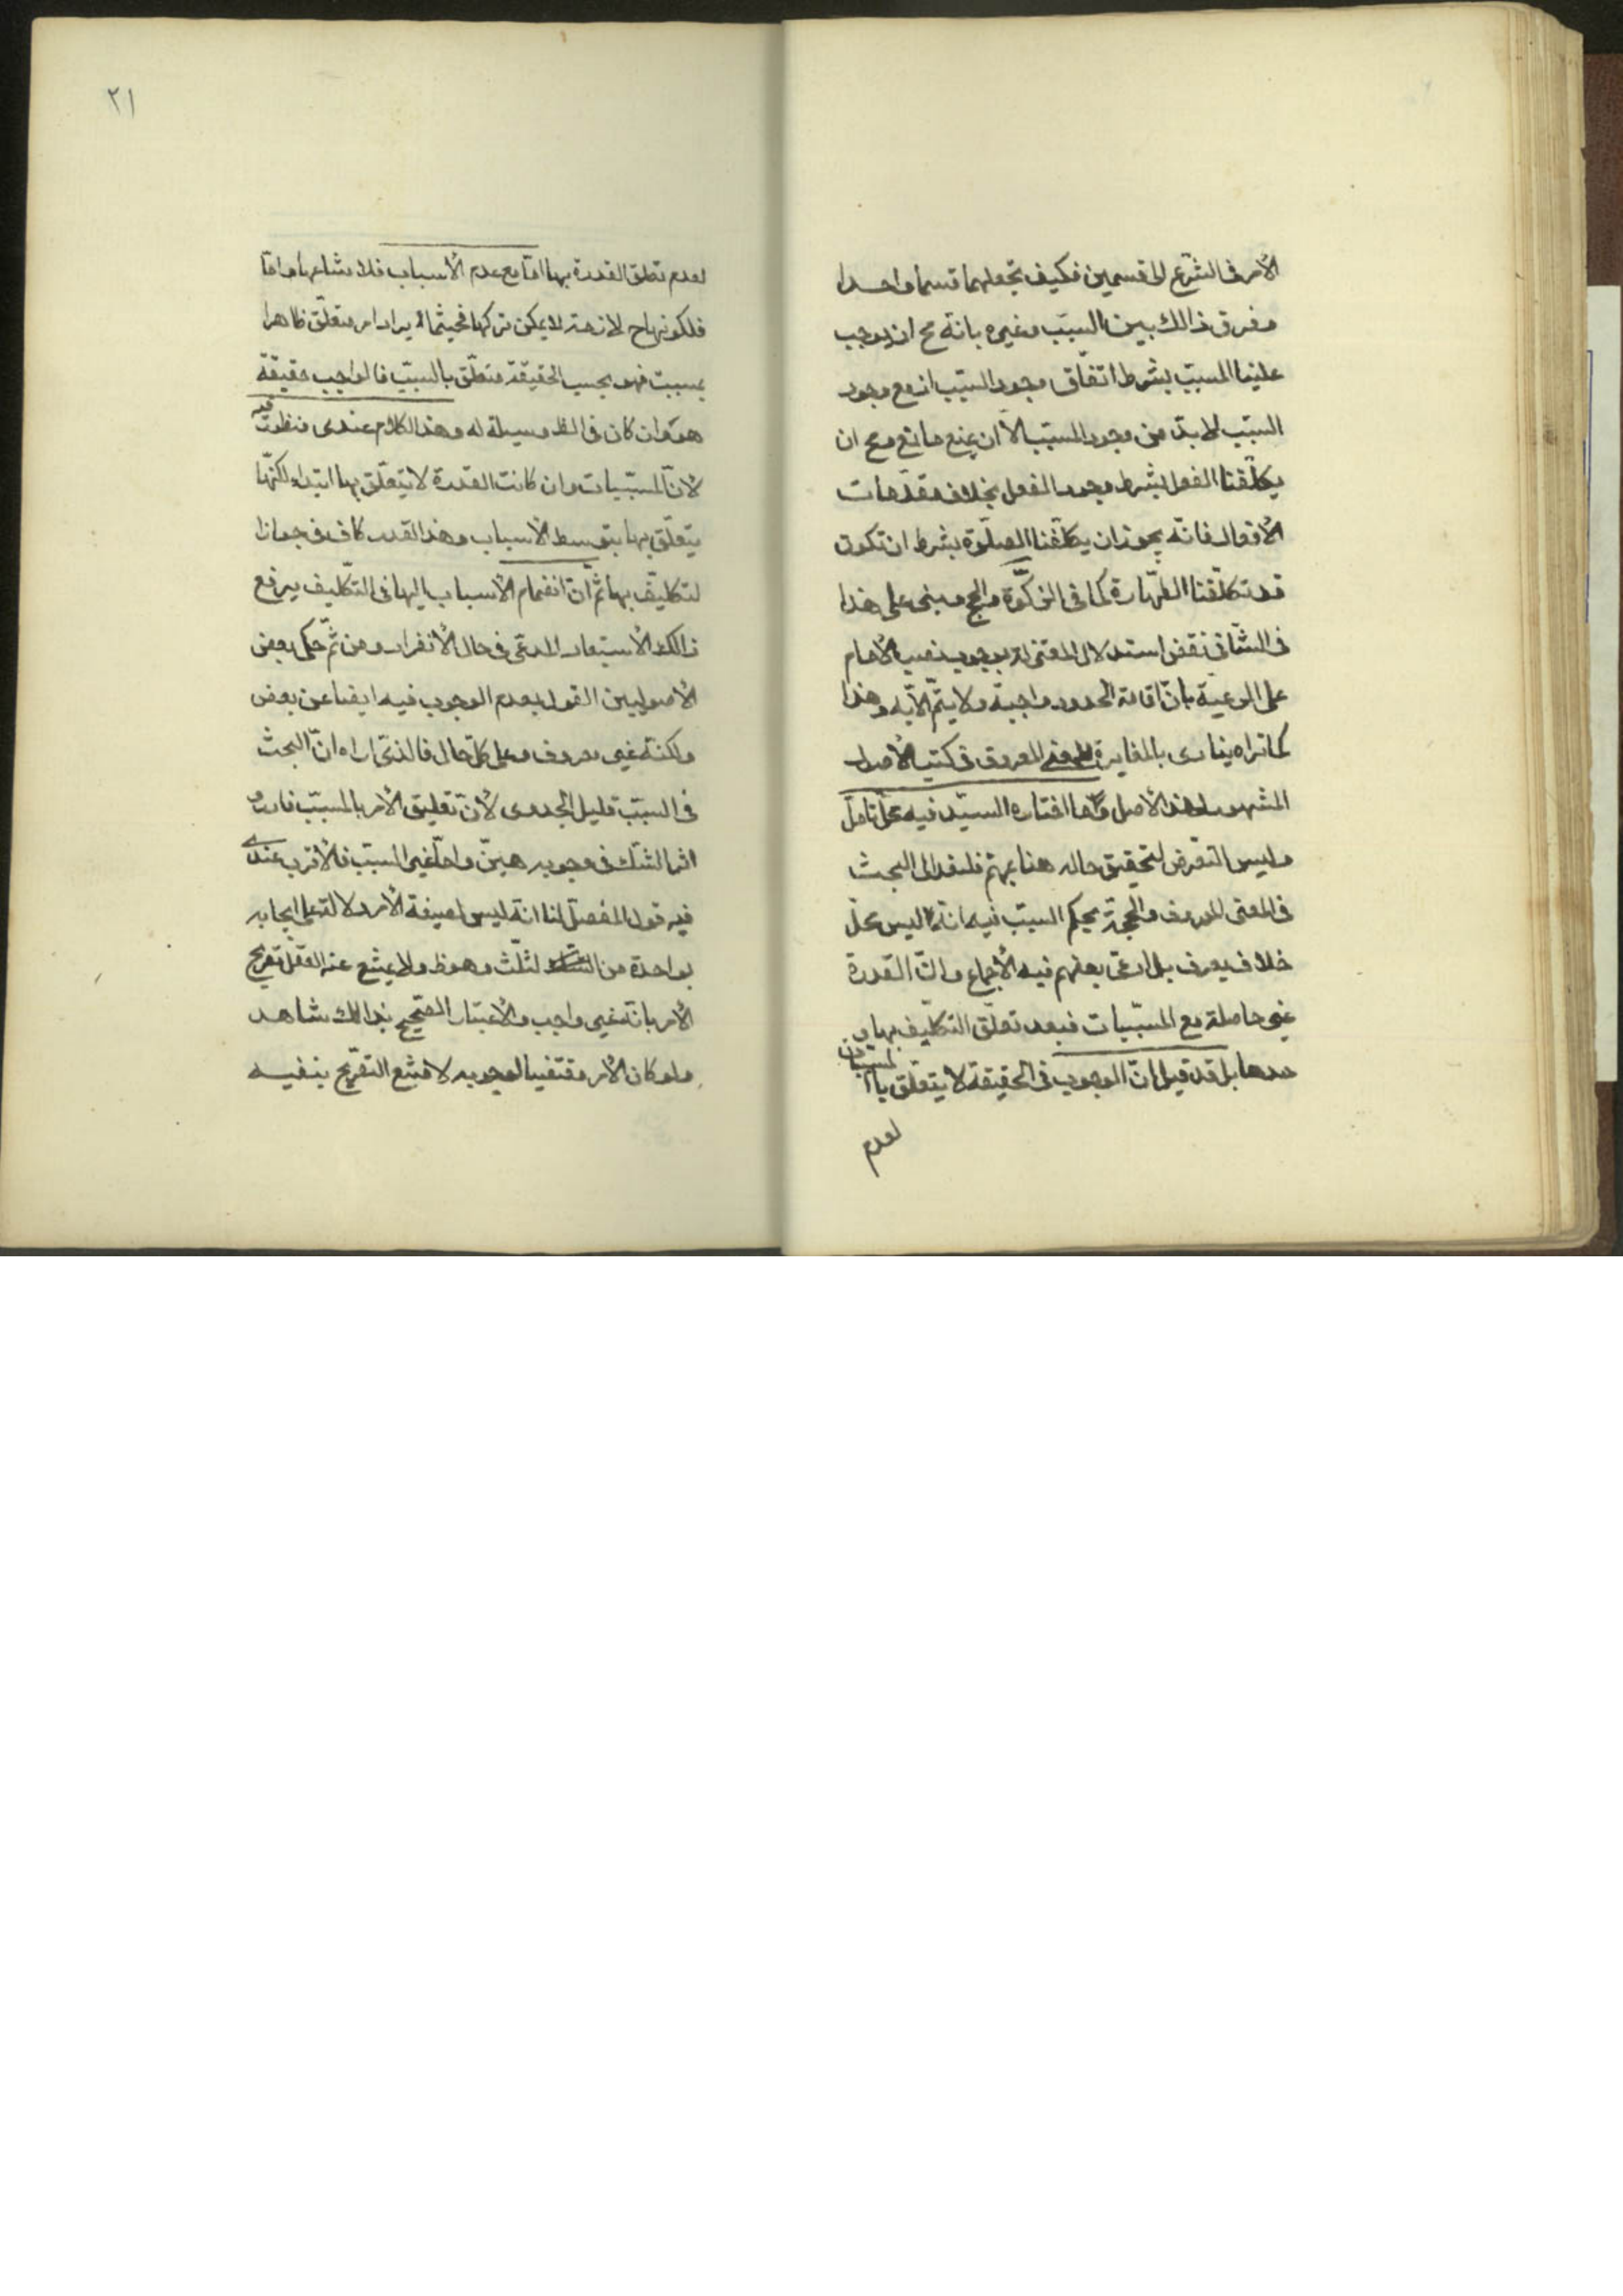 الأمر فى الشّرع الى قسمين فكيف تجعلهما قسما واحدا
وفرق فى ذالك بين السّبب وغيره بانّه مح ان يوجب
علينا المسبّب بشرط اتّفاق وجود السّبب اذ مع وجود
السّبب لا بدّ من وجود المسبّب الاّ ان يمنع مانع ومح ان
يكلّفنا الفعل بشرط وجود الفعل بخلاف مقدّمات
الأفعال فانّه يجوز ان يكلّفنا الصّلوة بشرط ان تكون
قد تكلّفنا الطّهارة كما فى الزّكوة والحج وبنى على هذا
فى الشّافى نقض استدلال المعتزلة بوجوب نصب الأمام
على الرعيّة بانّ اقامة الحدود واجبة ولا يتمّ الاّ به وهذا
كما تراه ينادى بالمغايرة للمعنى المعروف فى كتب الأصول
المشهورة لهذا الأصل وما اختاره السيّد فيه محلّ تامّل
وليس التعرض لتحقيق حاله هنا بمهمّ فلنعد الى البحث
فى المعنى المعروف والحجّة بحكم السبب فيه انّه ليس محلّ
خلاف يعرف بل ادعى بعضهم فيه الأجماع وانّ القدرة
غير حاصلة مع المسبّبات فيبعد تعلّق التكليف بها و
حدها بل قد قيل انّ الوجوب فى الحقيقة لا يتعلّق باالمسببات
لعدم
٢١
لعدم تعلق القدرة بها امّا مع عدم الأسباب فلامتناعها وامّا
معها فلكونها ح لازمة لا يمكن تركها فحيثما يرد امر متعلّق ظاهرا
بمسبب فهو بحسب الحقيقة متعلّق بالسبب فالواجب حقيقة
هو وان كان فى الظ وسيلة له وهذا الكلام عندى منظور فيه
لأنّ المسبّبات وان كانت القدرة لا تتعلّق بها ابتداء لكنّها
يتعلّق بها بتوسط الأسباب وهذا القدر كاف فى جواز ا
لتكليف بها ثمّ انّ انضمام الأسباب اليها فى التّكليف يرفع
ذالك الأستبعاد المدعى فى حال الأنفراد ومن ثمّ حكى بعض
الأصوليين القول بعدم الوجوب فيه ايضا عن بعض
ولكنّه غير معروف وعلى كلّ حال فالذى اراه انّ البحث
فى السبّب قليل الجدوى لأنّ تعليق الأمر بالمسبّب نادر و
اثر الشّك فى وجوبه هيّن وامّا غير السبب فالأقرب عندى
فيه قول المفصّل لنا انّه ليس لصيغة الأمر دلالة على ايجابه
بواحدة من الثّلث وهو ظ ولا يمتنع عند العقل تصريح
الأمر بانّه غير واجب والأعتبار الصّحيح بذالك شاهد
ولو كان الأمر مقتضيا لوجوبه لامتنع التصريح بنفيه